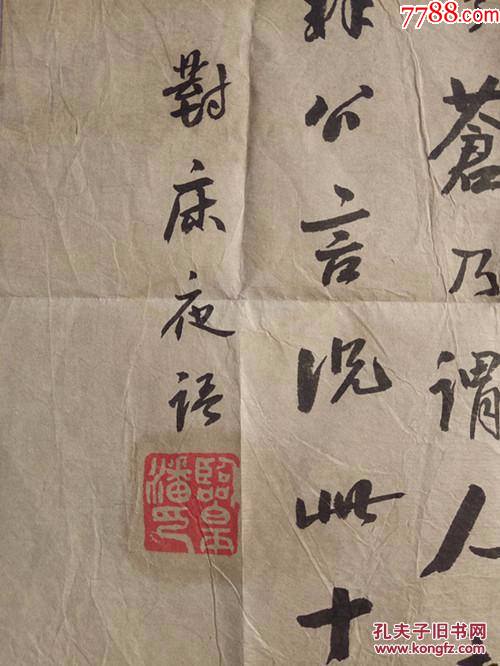 7788.com
蒼乃謂人
公言況此十
對床夜語
潘印
孔夫子旧书网
www.kongfz.com